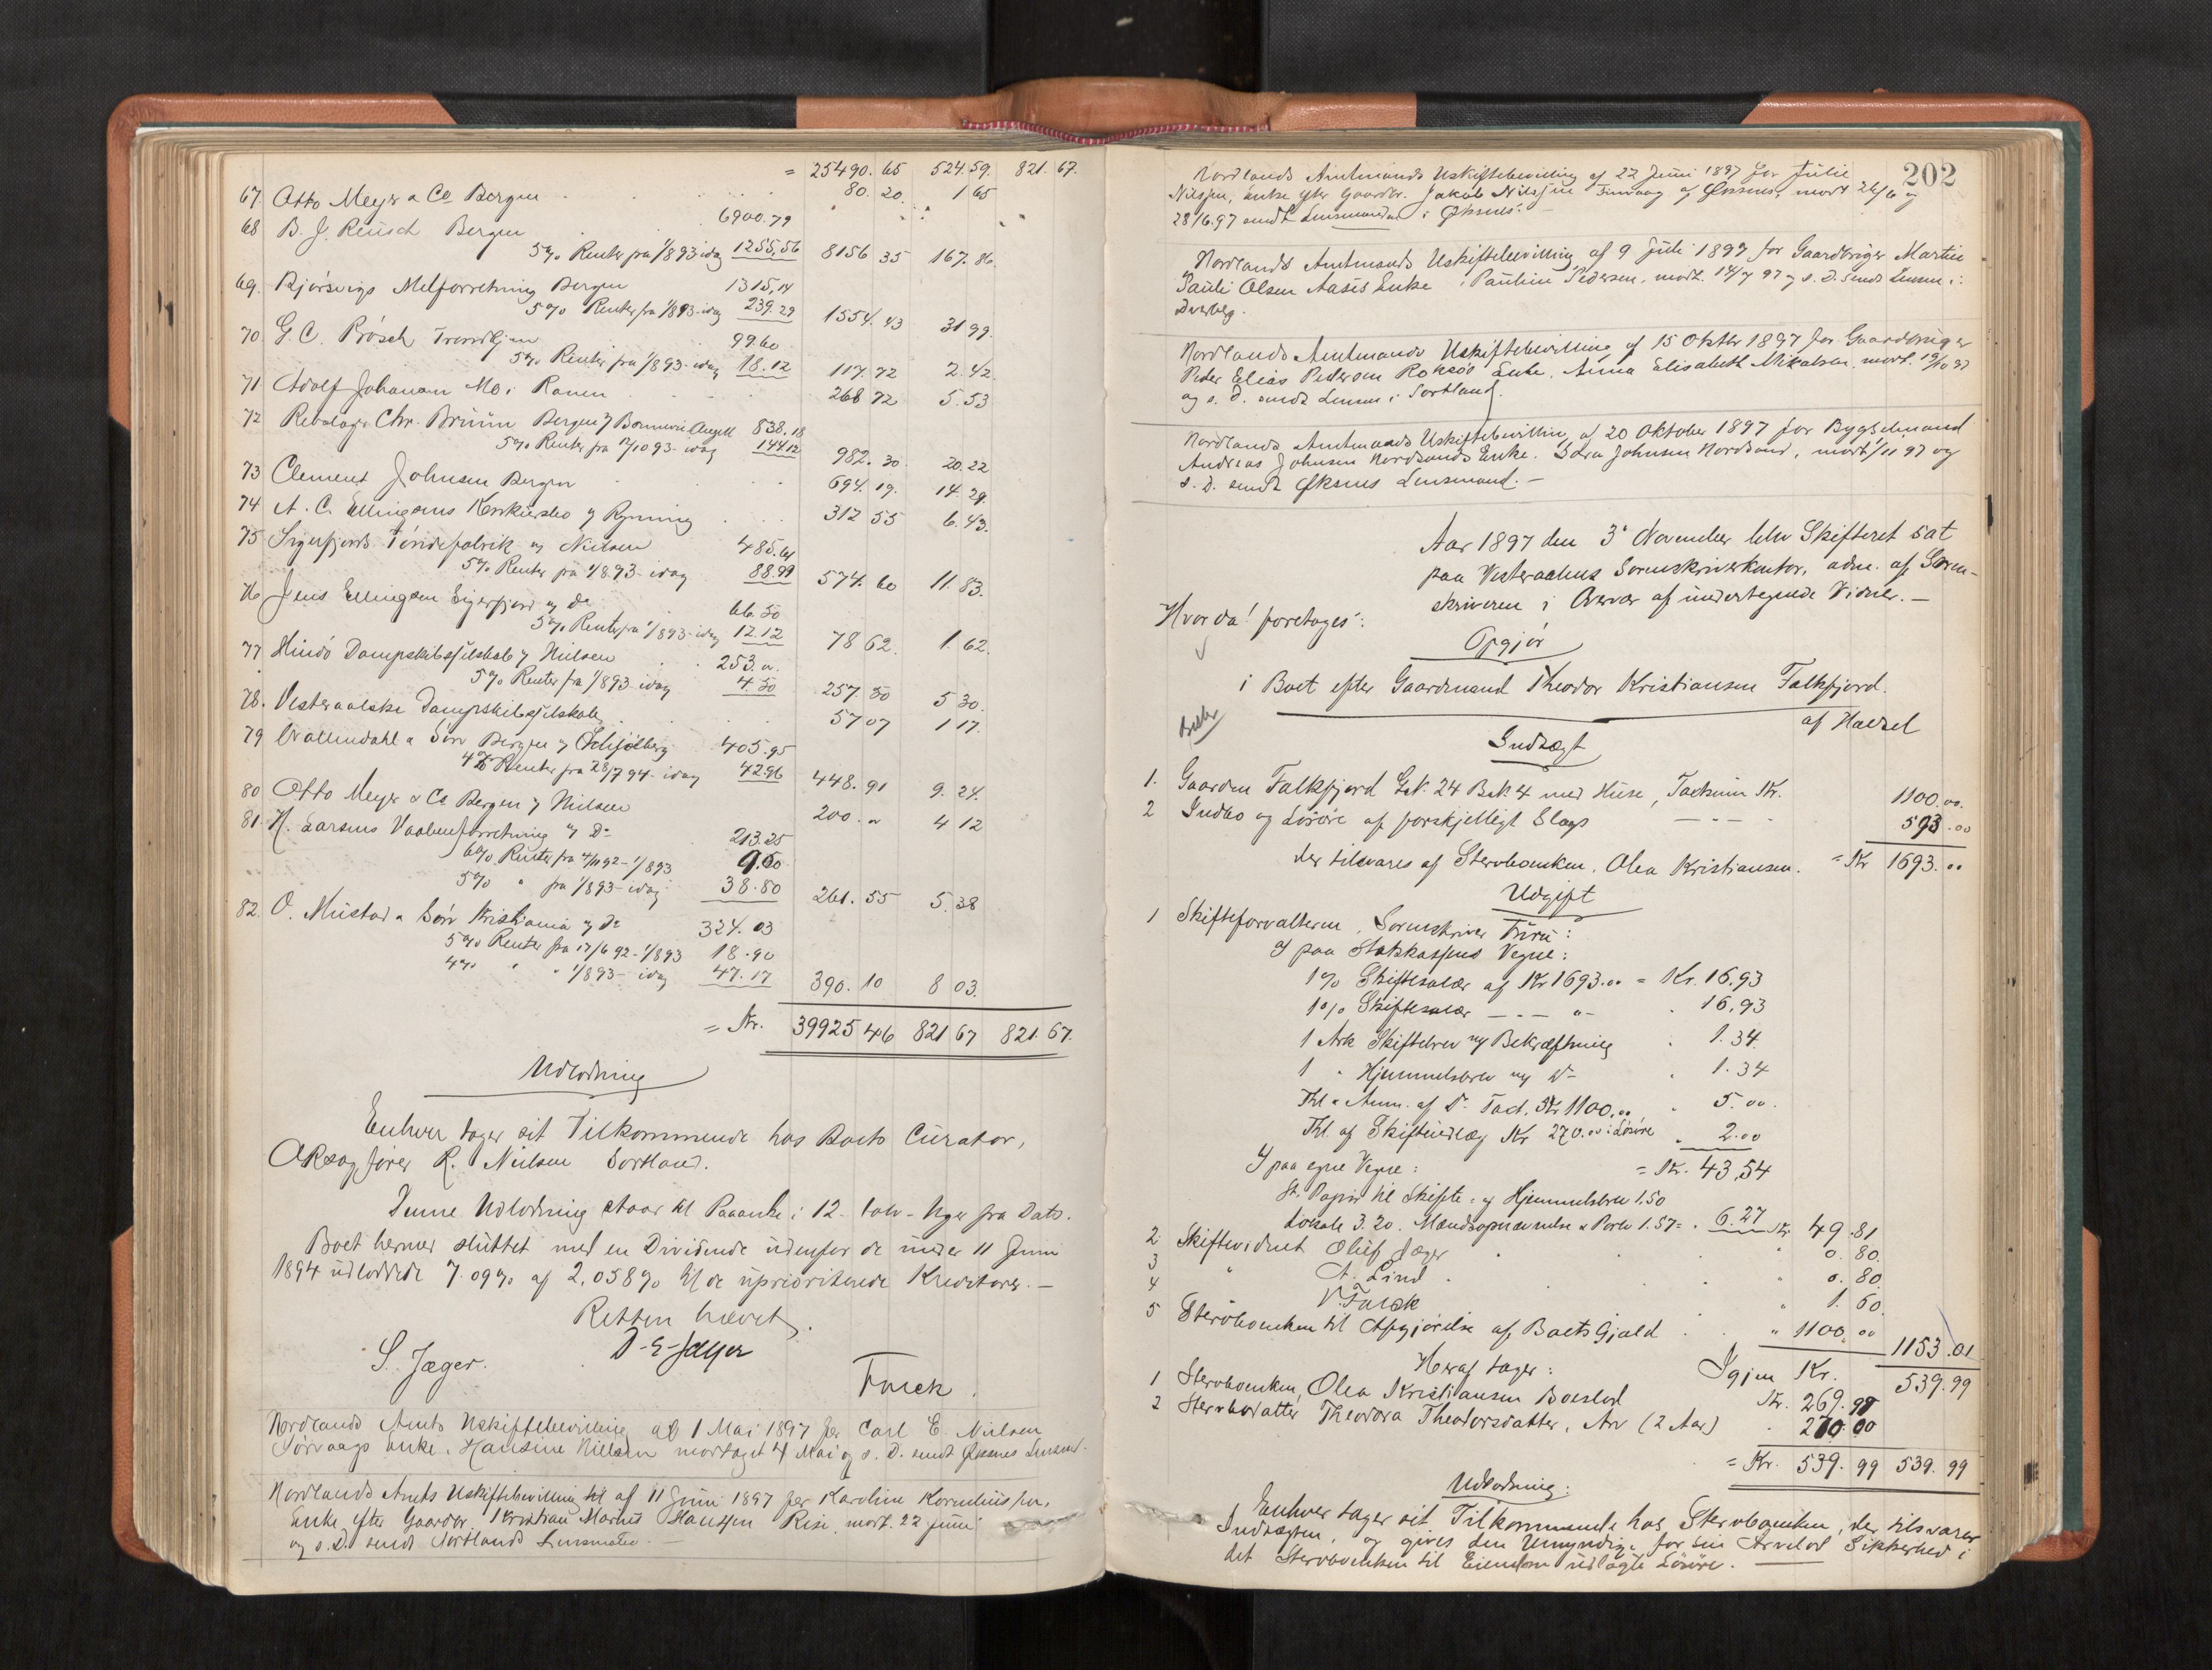 = 25490. 65 524. 59. 821. 67.
67. Otto Meyer & Co Bergen 80. 20. 1 65
68 B. J. Reusch Bergen 6900. 79
5% Renter fra 1/8 93 - idag 1255,56 8156 35 167. 86.
69. Bjørsvigs Melforretning Bergen 1315,14
5% Renter fra 1/8 93 - idag 239. 29 1554. 43 31 99.
70. G. C. Brøsch Trondhjem 99. 60
5% Renter fra 1/8 93 - idag 18. 12 117. 72 2. 42.
71 Adolf Johansen Mo i Ranen 268 72 5. 53
72 Rebslager Chr. Bruun Bergen 838. 18
5% Renter fra 12/10 93 - idag 144.12 982. 30 20. 22
73 Clement Johnsen Bergen 694. 19. 14. 29.
74 A. C. Ellingsens Konkursbo 312 55 6. 43.
75 Sigerfjords Tøndefabrik v/ Nielsen 485. 61
5% Renter fra 1/8 93 - idag 88.99 574. 60 11. 83.
76 Jens Ellingsen Sigerfjord v/ Do 66. 50
5% Renter fra 1/8 93 - idag 12.12 78 62. 1. 62.
77 Hindø Dampskibsselskab v/ Nielsen 253. "
5% Renter fra 1/8 93 - idag 4. 50 257. 50 5 30.
78. Vesteraalske Dampskibsselskab 57 07 1 17.
79 Wallendahl & Søn Bergen v/ Schjølberg 405. 95
4% Renter fra 28/7 94 - idag 42.96 448. 91 9. 24.
80 Otto Meyer & Co Bergen v/ Nielsen 200. " 4 12
81. H. Larsens Vaabenforretning v/ Do 213.25
6% Renter fra 4/11 92 - 1/8 93 9.50
5% " fra 1/8 93 - idag 38. 80 261. 55 5. 38
82. O. Mustad & Søn Kristiania v/ Do 324. 03
5% Renter fra 17/6 92 - 1/8 93 18. 90
4% " " 1/8 93 - idag 47. 17 390. 10 8 03.
= Kr. 39925 46 821 67 821. 67.
Udlodning
Enhver tager sit Tilkommende hos Boets Curator,
ORsagfører R. Nielsen Sortland.
Denne Udlodning staar til Paaanke i 12 - tolv - Uger fra Dato.
Boet hermed sluttet med en Dividende udenfor de under 11 Juni
1894 udloddede 7.09% af 2,058% til de uprioriterede Kreditorer. —
Retten hævet.
S. Jæger. D. E. Jæger
Furck.
Nordlands Amts Uskiftebevilling af 1 Mai 1897 for Carl E. Nielsen
Sørvaags Enke, Hansine Nielsen modtaget 4 Mai og s. D. sendt Øksnes Lensmd.
Nordlands Amts Uskiftebevilling til af 11 Juni 1897 for Karoline Korneliusen,
Enke efter Gaardbr. Kristian Marius Hansen Rise, modt. 22 Juni
og s. D. sendt Sortlands Lensmand. —
202
Nordlands Amtmands Uskiftebevilling af 22 Juni 1897 for Julie
Nilsen, Enke efter Gaardbr. Jakob Nilssen Finvaag af Øksnes, modt 26/6 og
28/6.97 sendt Lensmanden i Øksnes. —
Nordlands Amtmands Uskiftebevilling af 9 Juli 1897 for Gaardbruger Martin
Pauli Olsen Aases Enke: Pauline Pedersen, modt. 14/7 97 og s. D. sendt Lensm i
Dverberg.
Nordlands Amtmands Uskiftebevilling af 15 Oktbr 1897 for Gaardbruger
Peder Elias Pedersen Roksøs Enke, Anna Elisabeth Mikalsen, modt. 19/10 97
og s. D. sendt Lensm i Sortland.
Nordlands Amtmands Uskiftebevilling af 20 Oktober 1897 for Bygselmand
Andreas Johnsen Nordsands Enke. Johnsen Nordsand, modt 1/11 97 og
s. D. sendt Øksnes Lensmand. —
Aar 1897 den 3 November blev Skifteret sat
paa Vesteraalens Sorenskriverkontor, adm. af Soren-
skriveren i Overvær af undertegnede Vidner. —
Hvorda! foretoges:
Opgjør
i Boet efter Gaardmand Theodor Kristiansen Falkfjord.
af Hadsel
Indtægt
1. Gaarden Falkfjord Gk. 24 Bk. 4 med Huse, Taxtsum Kr. 1100. 00.
2 Indbo og Løsøre af forskjelligt Slags — " — 593. 00
der tilsvares af Stervboenken, Olea Kristiansen. = Kr 1693. 00
Udgift
1 Skifteforvalteren, Sorenskriver Furu:
I paa Statskassens Vegne:
1% Skiftesalær af Kr 1693.00 = Kr. 16,93
1% Skiftesalær — " — " — 16,93
1 Ark Skiftebrev m/ Bekræftning 1. 34
1 " Hjemmelsbrev m/ Do 1. 34
Thl & Anm. af Do Taxt. Kr 1100.00 5. 00.
Thl. af Skifteudlæg Kr 270.00 i Løsøre " 2.00
I paa egne Vegne: = Kr. 43,54
St. Papir til Skifte- og Hjemmelsbrev 1,50
Lokale 3. 20. Mændsopnævnelse & Porto 1.57 = . 6. 27 Kr. 49. 81
2 Skiftevidnet Oluf Jæger " 0. 80.
3 " A. Lind " 0. 80.
4 V. Furck " 1. 60.
5 Stervboenken til Afgjørelse af Boets Gjæld " 1100. 00 1153. 01
Igjen Kr. 539. 99
Heraf tager:
1 Stervboenken, Olea Kristiansen Boeslod Kr. 269. 99
2 Stervbodatter Theodora Theodorsdatter, Arv (2 Aar) 270. 00
= Kr. 539. 99 539. 99
Udlodning:
Enhver tager sit Tilkommende hos Stervboenken, der tilsvarer
Indtægten, og gives den Umyndige for sin Arvelod Sikkerhed i
det Stervboenken til Eiendom udlagte Løsøre. —